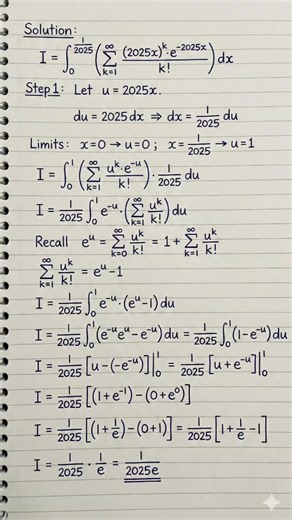 Solution:
I = ∫₀^(1/2025) (∑_{k=1}^{∞} (2025x)^k·e^(-2025x) / k!) dx
Step 1: Let u = 2025x.
du = 2025 dx ⇒ dx = 1/2025 du
Limits: x=0→u=0 ; x=1/2025→u=1
I = ∫₀¹ (∑_{k=1}^{∞} u^k·e^(-u) / k!)·1/2025 du
I = 1/2025 ∫₀¹ e^(-u)·(∑_{k=1}^{∞} u^k/k!) du
Recall e^u = ∑_{k=0}^{∞} u^k/k! = 1 + ∑_{k=1}^{∞} u^k/k!
∑_{k=1}^{∞} u^k/k! = e^u - 1
I = 1/2025 ∫₀¹ e^(-u)·(e^u - 1) du
I = 1/2025 ∫₀¹ (e^(-u)e^u - e^(-u)) du = 1/2025 ∫₀¹ (1 - e^(-u)) du
I = 1/2025 [u - (-e^(-u))]|₀¹ = 1/2025 [u + e^(-u)]|₀¹
I = 1/2025 [(1 + e^(-1)) - (0 + e⁰)]
I = 1/2025 [(1 + 1/e) - (0 + 1)] = 1/2025 [1 + 1/e - 1]
I = 1/2025 · 1/e = 1/2025e